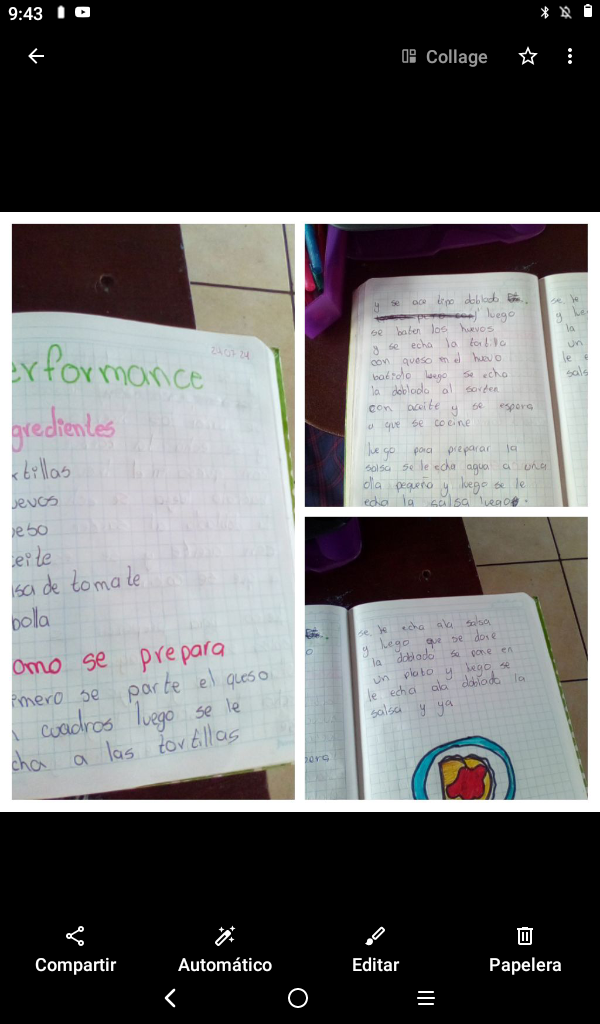 9:43
Collage
29 07 24
erformance
gredientes
rtillas
uevos
ueso
ceite
lsa de tomate
bolla
omo se prepara
imero se parte el queso
n cuadros luego se le
cha a las tortillas
y se ace tipo doblado
luego
se baten los huevos
y se echa la tortilla
con queso en el huevo
batido luego se echa
la doblada al sarten
con aceite y se espera
a que se cocine
luego para preparar la
salsa se le echa agua a una
olla pequeña y luego se le
echa la salsa luego
se le
y lue
la
un
le e
sals
se le echa ala salsa
y luego que se dore
la doblada se pone en
un plato y luego se
le echa ala doblada la
salsa y ya
pera
Compartir
Automático
Editar
Papelera